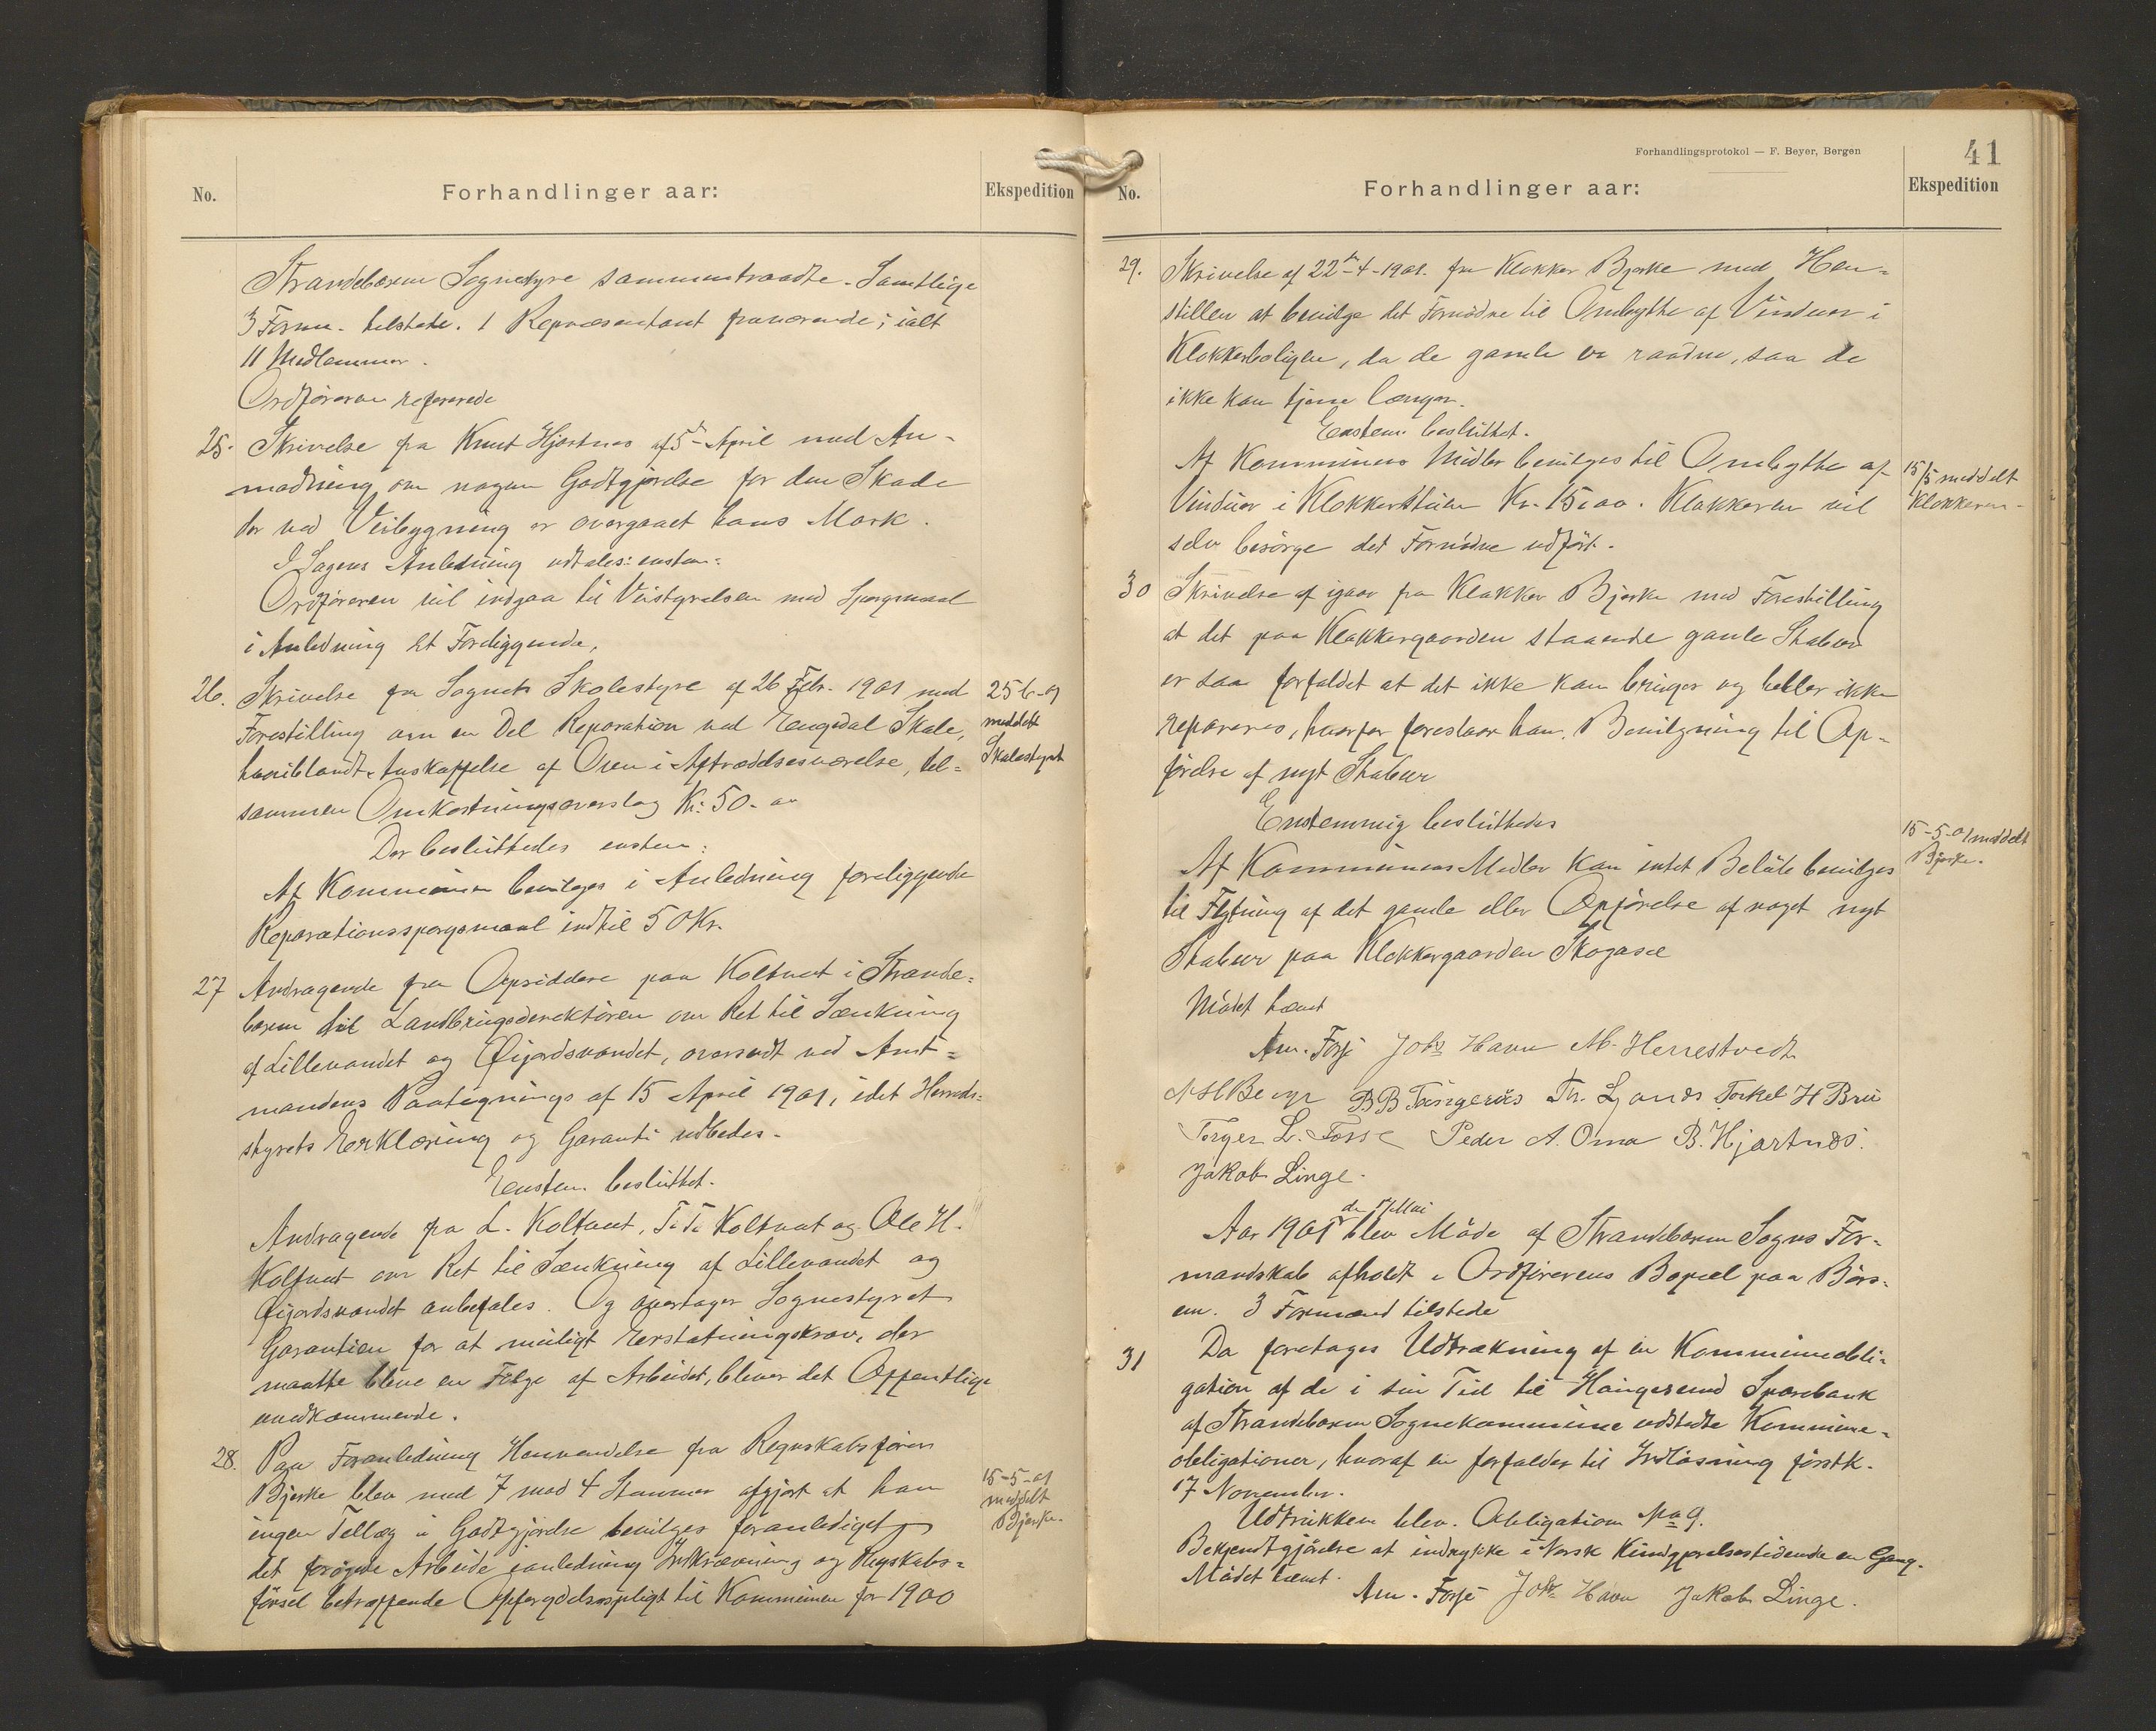 No.
Forhandlinger aar:
Ekspedition
Strandebarm Sognestyre sammentraadte. Samtlige
3 Form. tilstede. 1 Repræsentant fraværende; ialt
11 Medlemmer.
Ordføreren refererede
25. Skrivelse fra Knut Hjartnes af 5te April med An-
modning om nogen Godtgjørelse for den Skade
der ved Veibygning er overgaaet hans Mark.
I Sagens Anledning udtales: enstem:
Ordføreren vil indgaa til Veistyrelsen med Spørgsmaal
i Anledning Et Foreliggende,
26. Skrivelse fra Sognets Skolestyre af 26 Febr. 1901 med
Forestilling om en Del Reparation ved Engedal Skole,
hvoriblandt Anskaffelse af Oven i Aftrædelsesværelse, til-
sammen Omkostningsoverslag Kr: 50.00
25-6-01
meddelt
Skolestyret
Der besluttedes enstem:
Af Kommunen bevilges i Anledning foreliggende
Reparationsspørgsmaal indtil 50 Kr.
27 Andragende fra Opsiddere paa Koltveit i Strande-
barm til Landbrugsdirektøren om Ret til Sænkning
af Lillevandet og Øijordsvandet, oversendt ved Amt-
mandens Paategnings af 15 April 1901, idet Herreds-
styrets Erklæring og Garanti udbedes.
Enstem. besluttet.
Andragende fra L. Koltveit, T. T. Koltveit og Ole H.
Koltveit om Ret til Sænkning af Lillevandet og
Øijordsvandet anbefales. Og overtager Sognestyret
Garantien for at muligt Erstatningskrav, der
maatte blive en Følge af Arbeidet, bliver det Offentlige
uvedkommende.
28. Paa Foranledning Henvendelse fra Regnskabsfører
Bjerke blev med 7 mod 4 Stemmer afgjort at ham
ingen Tillæg i Godtgjørelse bevilges foranlediget
det forøgede Arbeide ianledning Indkrævning og Regnskabs-
førsel betræffende Opførgdelsespligt til Kommunen for 1900
15-5-01
meddelt
Bjerke.
Forhandlingsprotokol — F. Beyer, Bergen
41
No.
Forhandlinger aar:
Ekspedition
29. Skrivelse af 22de-4-1901. fra Klokker Bjerke med Hen-
stillen at bevilge det Fornødne til Ombytte af Vinduer i
Klokkerboligen, da de gamle er raadne, saa de
ikke kan tjene længer.
Enstem. besluttet.
Af Kommunens Midler bevilges til Ombytte af
Vinduer i Klokkerstuen Kr. 15,00. Klokkeren vil
selv besørge det Fornødne udført.
15/5 meddelt
Klokkeren-
30 Skrivelse af igaar fra Klokker Bjerke med Forestilling
at det paa Klokkergaarden staaende gamle Stabur
er saa forfaldet at det ikke kan bruges og heller ikke
repareres, hvorfor foreslaar han. Bevilgning til Op-
førelse af nyt Stabur
Enstemmig besluttedes
Af Kommunens Midler kan intet Beløb bevilges
til Flytning af det gamle eller Opførelse af noget nyt
Stabur paa Klokkergaarden Skogasel
15-5-01 meddelt
Bjerke.
Mødet hævet
Am. Fosse Johs Havn M. Herrestvedt
N H Berge B B Tangerås Th. Ljones Torkel H Bru
Torger L. Fosse Peder A. Oma B. Hjartnes.
Jakob Linge.
Aar 1901 den 7 Mai blev Møde af Strandebarm Sogns For-
mandskab afholdt i Ordførerens Bopæl paa Børs-
em. 3 Formænd tilstede
31 Da foretages Udtrækning af en Kommuneobli-
gation af de i sin Tid til Haugesund Sparebank
af Strandebarm Sognekommune udstedte Kommune-
obligationer, hvoraf en forfalder til Indløsning førstk.
17 November.
Udtrukken blev. Obligation No 9.
Bekjendtgjørelse at indrykke i Norsk Kundgjørelsestidende en Gang.
Mødet hævet.
Am. Fosse Johs Havn Jakob Linge.